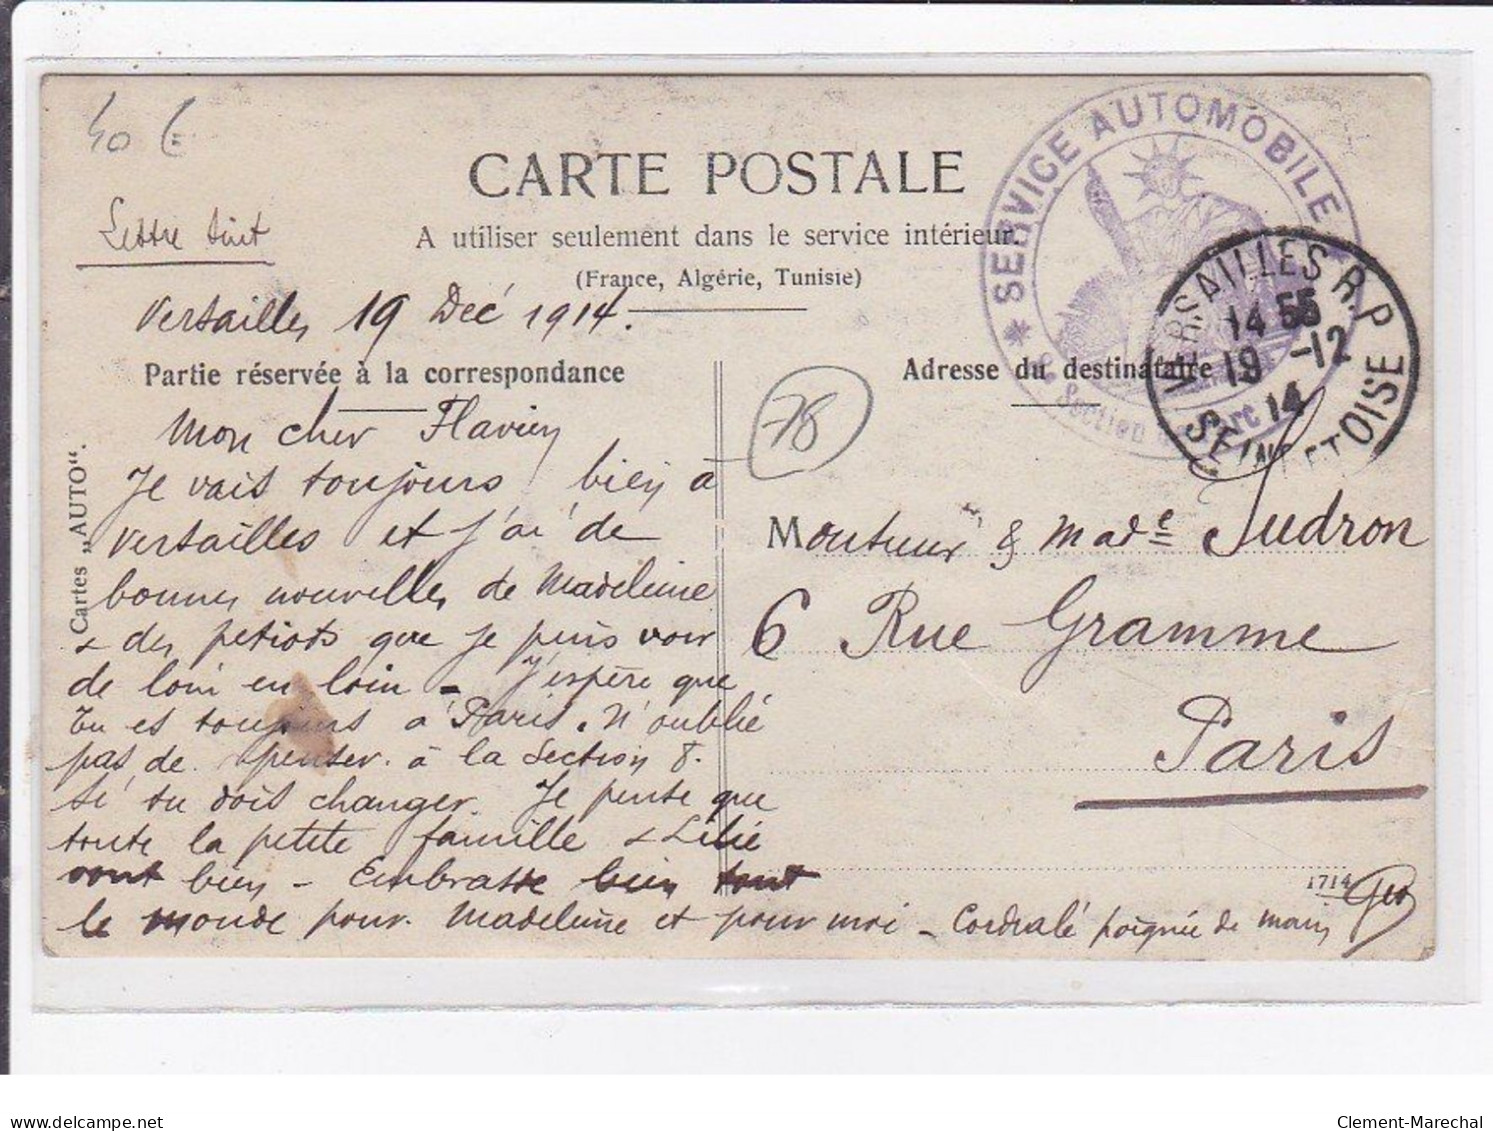 40 €
CARTE POSTALE
A utiliser seulement dans le service intérieur.
(France, Algérie, Tunisie)
Lettre suit
Versailles 19 Déc 1914.
SERVICE AUTOMOBILE
Section
VERSAILLES R.P
14 55
19 -12
14
SEINE ET OISE
Partie réservée à la correspondance
Adresse du destinataire
78
Cartes „AUTO“.
Mon cher Flavien
Je vais toujours bien à
Versailles et j'ai de
bonnes nouvelles de Madeleine
& des petiots que je puis voir
de loin en loin - J'espère que
tu es toujours à Paris. N'oublie
pas de penser à la Section 8.
si tu dois changer. Je pense que
toute la petite famille & Lilie
vont bien - Embrasse bien tout
le monde pour Madeleine et pour moi - Cordiale poignée de main
Geo
Monsieur & Made Sudron
6 Rue Gramme
Paris
1714
Clement-Marechal